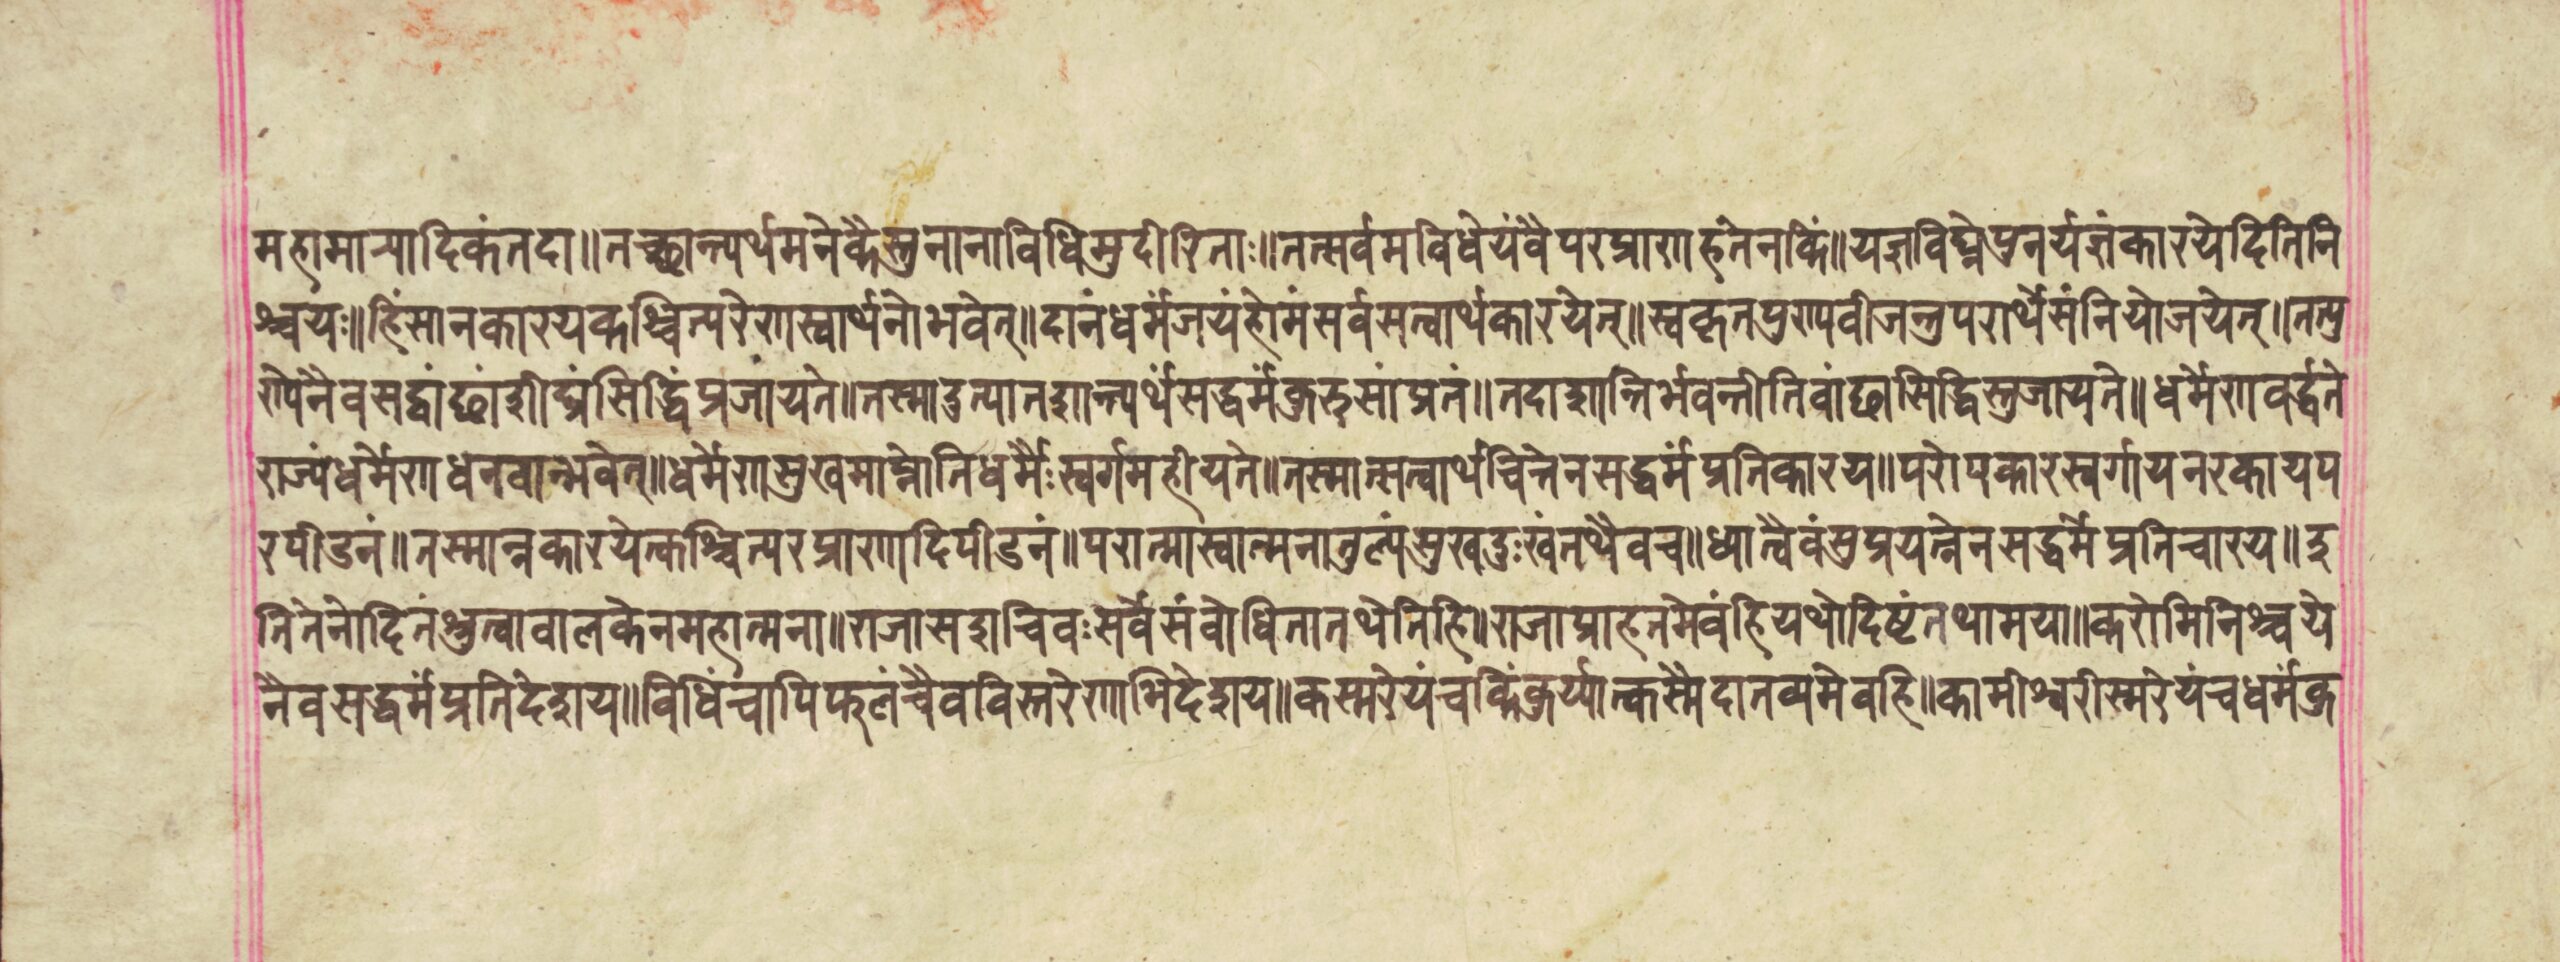 महामार्यादिकंतदा॥तच्छान्त्यर्थमनेकैस्तुनानाविधिमुदीरिताः॥तत्सर्वमविधेयंवैपरप्राणाहंतेनकिं॥यज्ञविघ्नेपुनर्यज्ञंकारयेदितिनि
श्चयः॥हिंसानकारयकश्चित्परेणस्वार्थनोभवेत्॥दानंधर्मंजयंहोमंसर्वसत्वार्थकारयेत्॥स्वकृतपुण्यवीजन्तुपरार्थेसंनियोजयेत्॥तत्पु
ण्येनैवसद्वांछांशीघ्रंसिद्धिंप्रजायते॥तस्मादुत्पातशान्त्यर्थंसद्धर्मंकुरुसांप्रतं॥तदाशान्तिर्भवन्तीतिवांछासिद्धिस्तुजायते॥धर्मेणवर्द्धते
राज्यंधर्मेणधनवान्भवेत्॥धर्मेणसुखमाप्नोतिधर्मैःस्वर्गमहीयते॥तस्मात्सत्वार्थचित्तेनसद्धर्मंप्रतिकारय॥परोपकारस्वर्गायनरकायप
रपीडनं॥तस्मान्नकारयेत्कश्चित्परप्राणादिपीडनं॥परात्मास्वात्मनातुल्यंसुखदुःखंतथैवच॥ध्यात्वैवंसुप्रयत्नेनसद्धर्मेप्रतिचारय॥इ
तितेनोदितंश्रुत्वावालकेनमहात्मना॥राजासशचिवःसर्वेसंवोधितातथेतिहि॥राजाप्राहतमेवंहियथोदिष्टंतथामया॥करोमिनिश्चये
नैवसद्धर्मंप्रतिदेशय॥विधिंचापिफलंचैवविस्तरेणाभिदेशय॥कस्मरेयंचकिंकुर्य्यात्कस्मैदातव्यमेवहि॥कामीश्वरीस्मरेयंचधर्मंकु